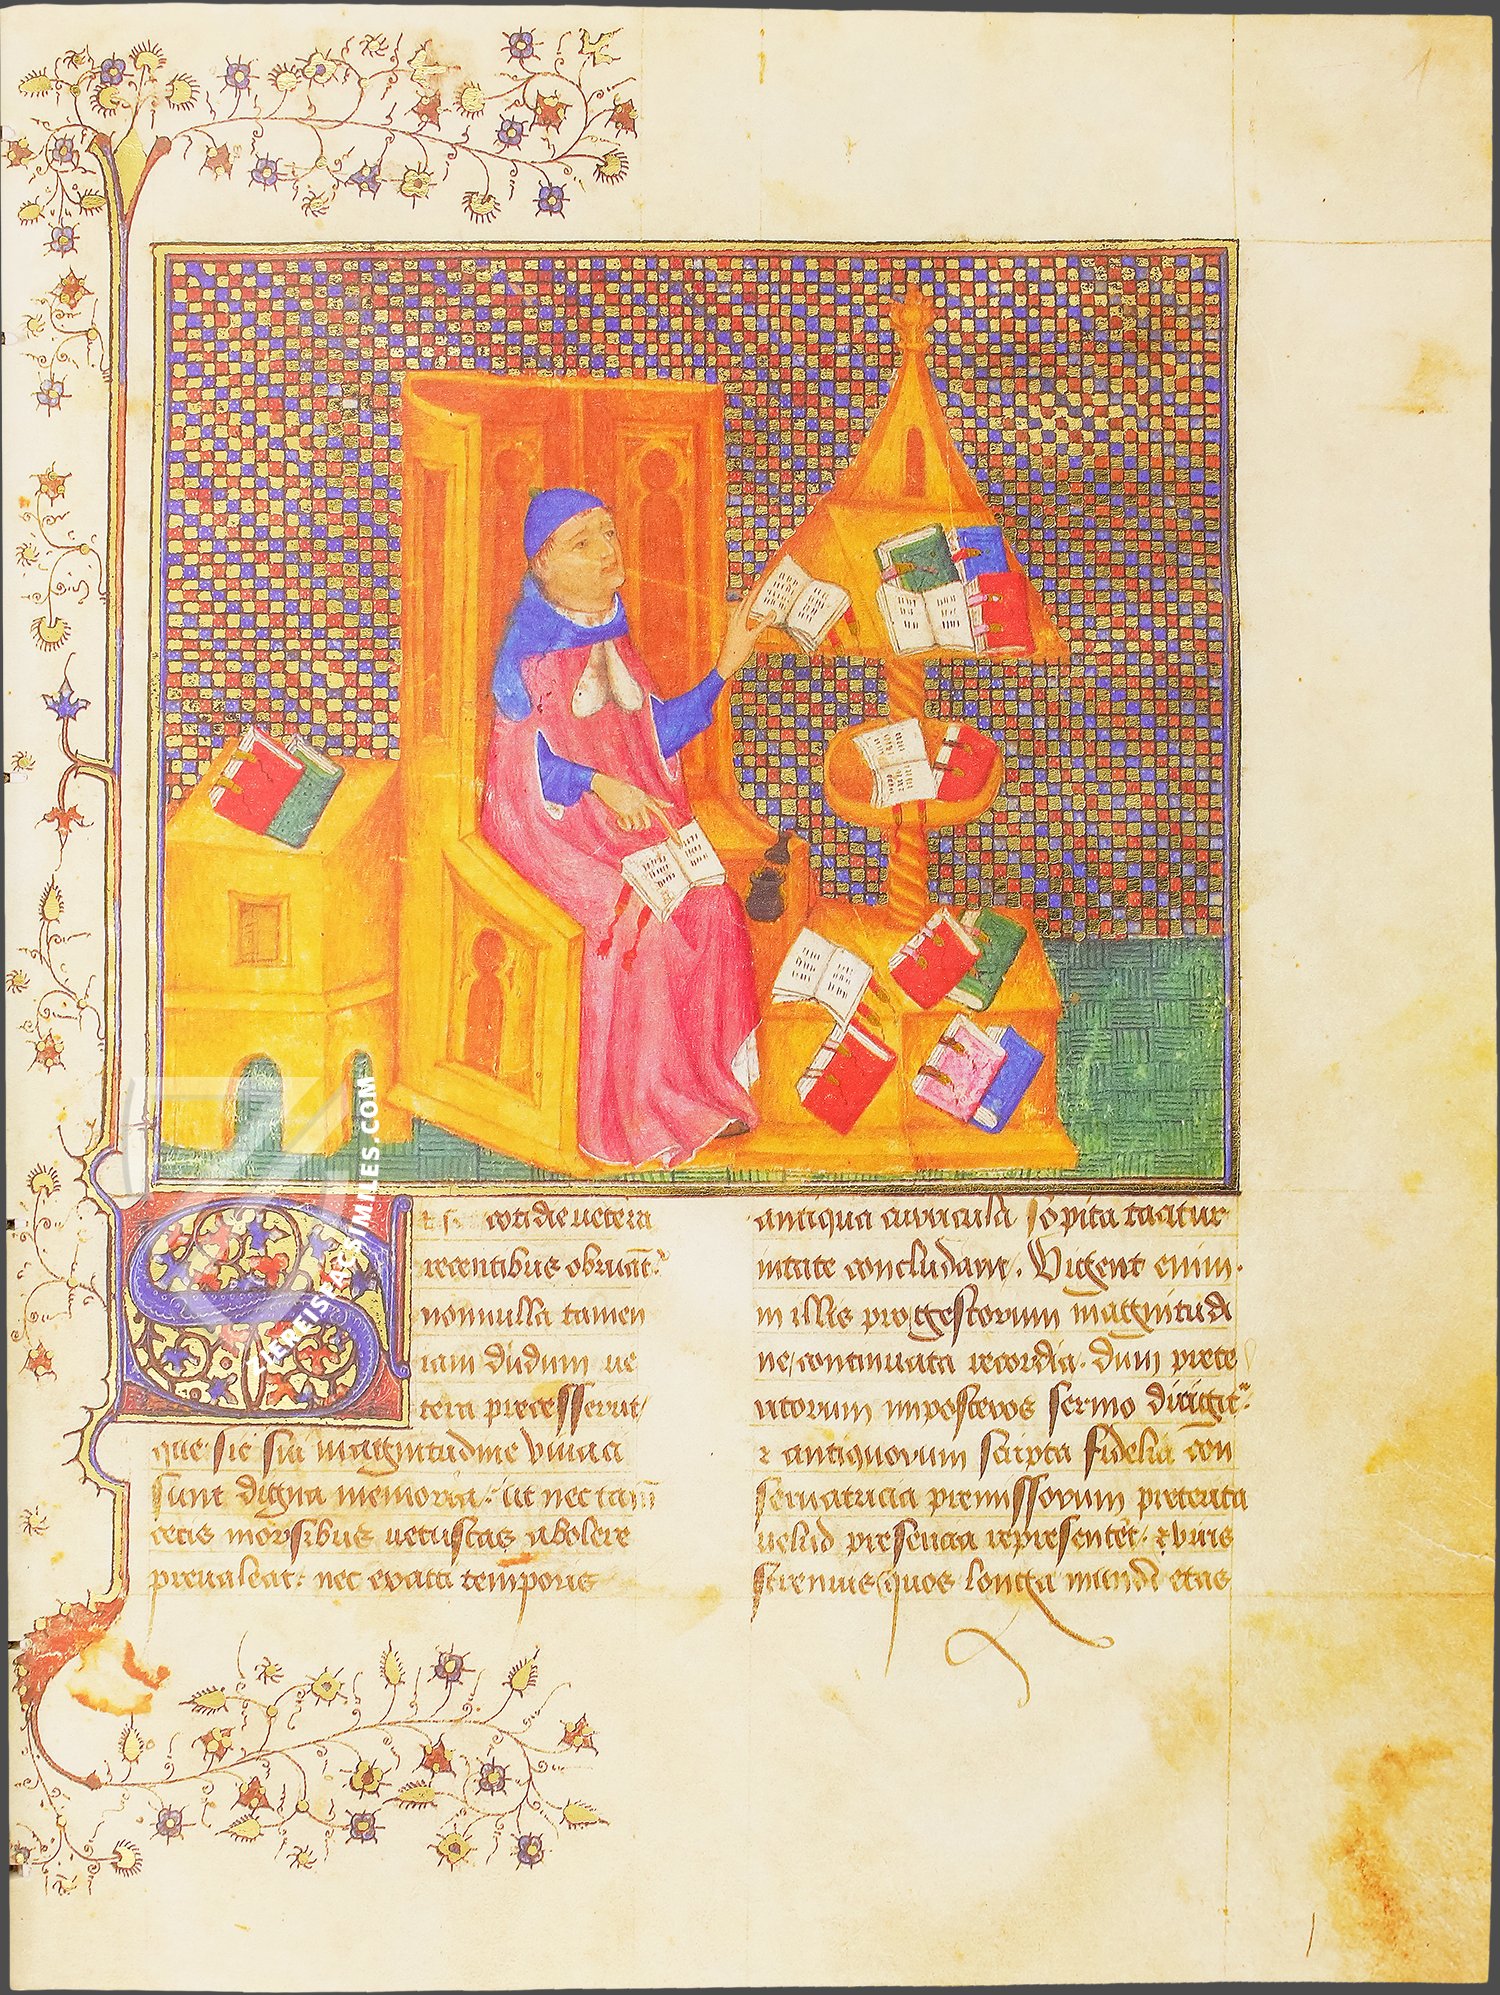 Et si cotidie uetera
recentibus obruāt᷑
nonnulla tamen
iam dudum ue
tera precesserūt
que sic sui magnitudine viuaci
sunt digna memoria ut nec tam
cecis morsibus uetustas abolere
preualeat nec exacti temporis
antiqua curricula sopita tacitur
nitate concludant. Vigent enim
in illis pro gestorum magnitudi
ne continuata recordia. dum prete
ritorum in posteros sermo dirigit᷑
⁊ antiquorum scripta fidelia con
seruatricia premissorum preterita
uelud presencia representēt. ⁊ viris
strenuis quos longa mundi etas
ZIEREISFACSIMILES.COM